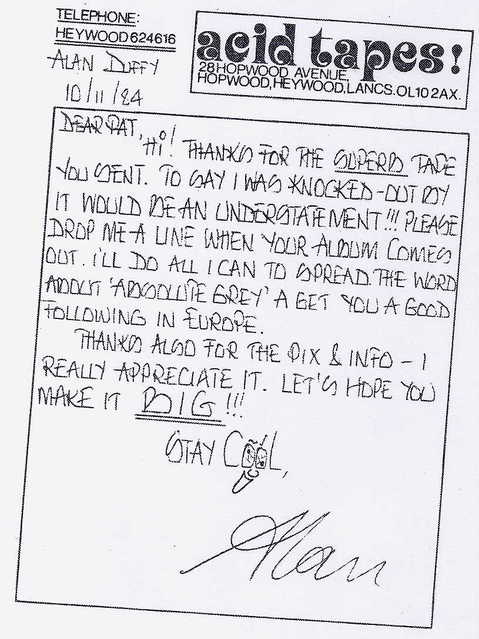 TELEPHONE:
HEYWOOD 624616
acid tapes!
28 HOPWOOD AVENUE,
HOPWOOD, HEYWOOD, LANCS. OL10 2AX.
ALAN DUFFY
10/11/84
DEAR PAT,
HI! THANKS FOR THE SUPERB TAPE
YOU SENT. TO SAY I WAS KNOCKED-OUT BY
IT WOULD BE AN UNDERSTATEMENT!!! PLEASE
DROP ME A LINE WHEN YOUR ALBUM COMES
OUT. I'LL DO ALL I CAN TO SPREAD THE WORD
ABOUT 'ABSOLUTE GREY' & GET YOU A GOOD
FOLLOWING IN EUROPE.
THANKS ALSO FOR THE PIX & INFO - I
REALLY APPRECIATE IT. LET'S HOPE YOU
MAKE IT BIG!!!
STAY COOL,
Alan